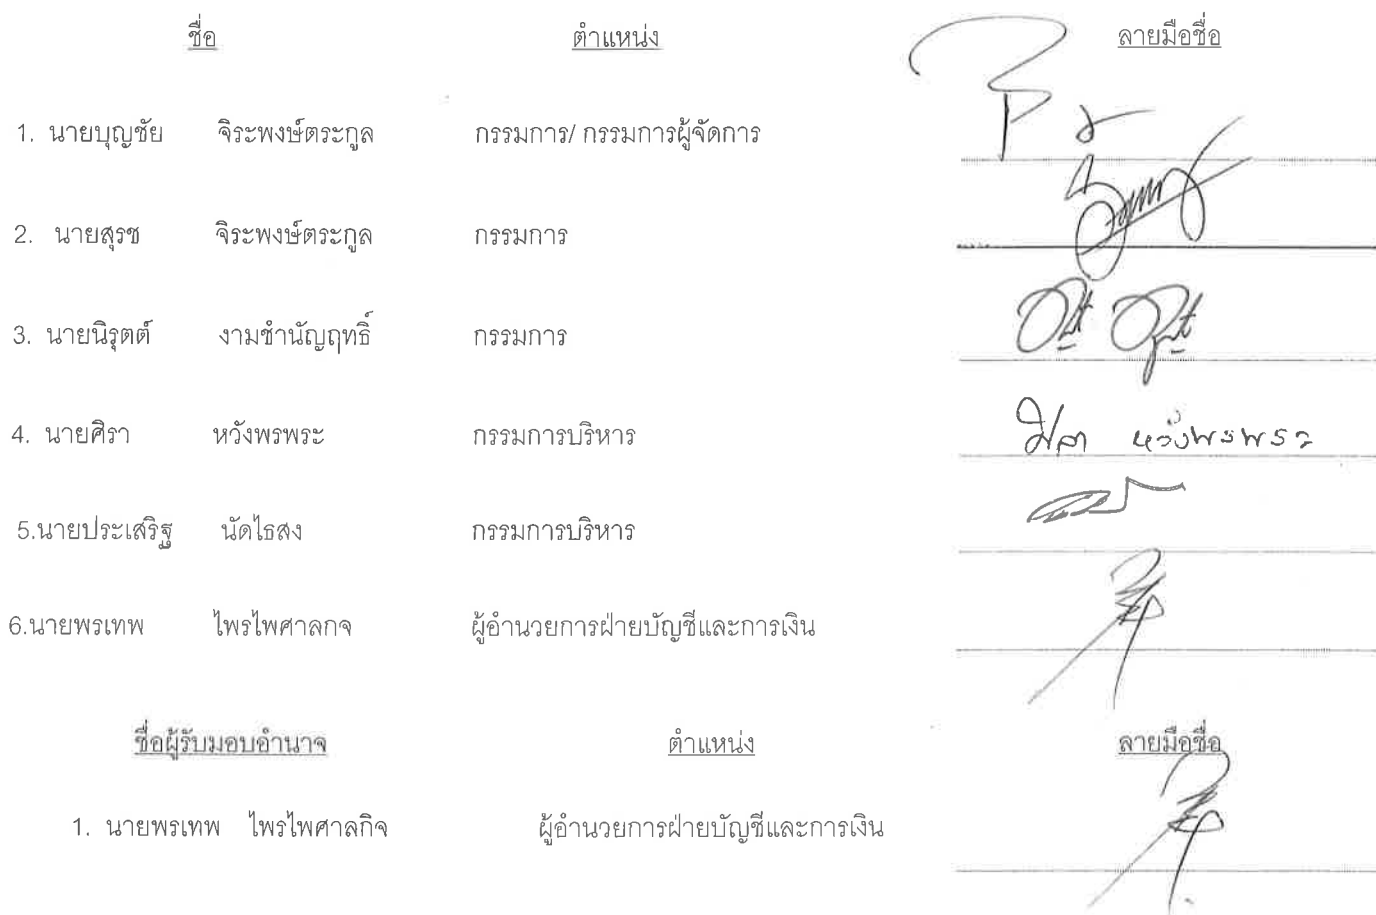 ชื่อ ตำแหน่ง ลายมือชื่อ
1. นายบุญชัย จิระพงษ์ตระกูล กรรมการ/ กรรมการผู้จัดการ
2. นายสุรช จิระพงษ์ตระกูล กรรมการ
3. นายนิรุตต์ งามชำนัญฤทธิ์ กรรมการ
4. นายศิรา หวังพรพระ กรรมการบริหาร ศิลา หวังพรพระ
5.นายประเสริฐ นัดไธสง กรรมการบริหาร
6.นายพรเทพ ไพรไพศาลกจ ผู้อำนวยการฝ่ายบัญชีและการเงิน
ชื่อผู้รับมอบอำนาจ ตำแหน่ง ลายมือชื่อ
1. นายพรเทพ ไพรไพศาลกิจ ผู้อำนวยการฝ่ายบัญชีและการเงิน